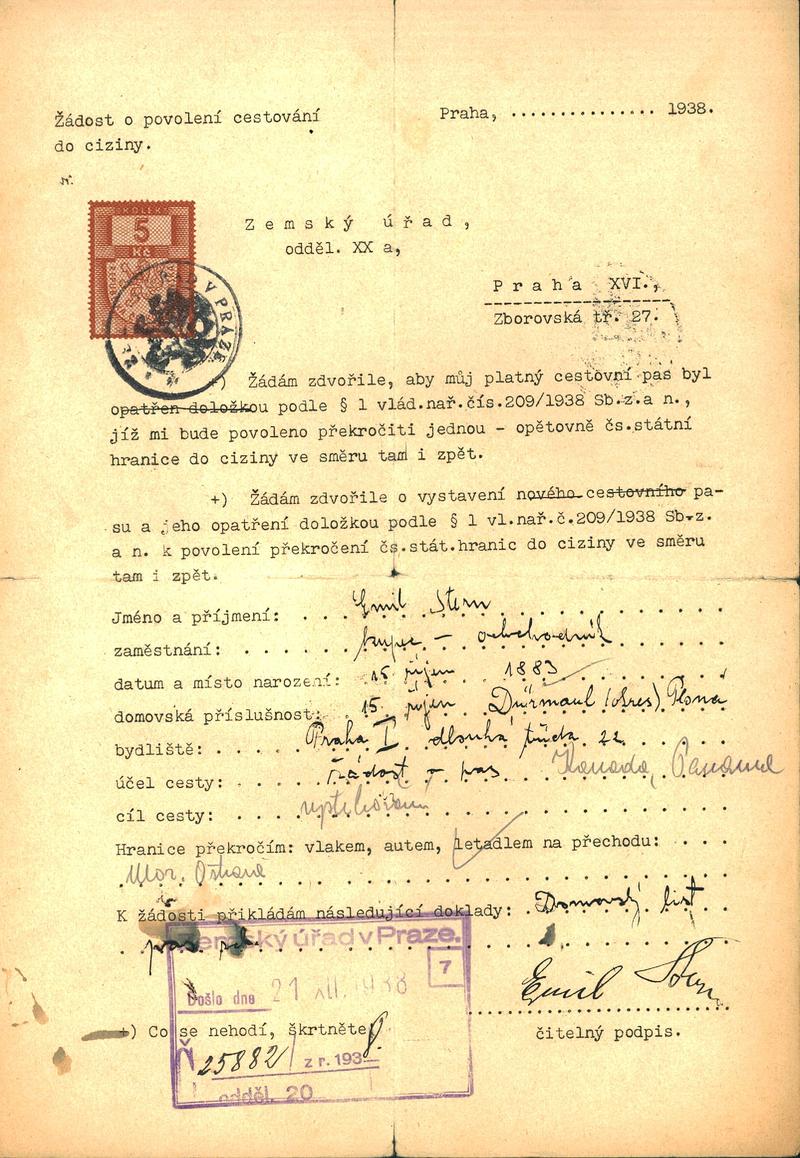 Žádost o povolení cestování
do ciziny.
Praha, ............... 1938.
KOLEK
5
Kč
V PRAZE
Zemský úřad,
odděl. XX a,
Praha XVI.,
Zborovská tř. 27.
+) Žádám zdvořile, aby můj platný cestovní pas byl
opatřen doložkou podle § 1 vlád.nař.čís.209/1938 Sb.z.a n.,
jíž mi bude povoleno překročiti jednou - opětovně čs.státní
hranice do ciziny ve směru tam i zpět.
+) Žádám zdvořile o vystavení nového cestovního pa-
su a jeho opatření doložkou podle § 1 vl.nař.č.209/1938 Sb.z.
a n. k povolení překročení čs.stát.hranic do ciziny ve směru
tam i zpět.
Jméno a příjmení: Emil Stern
zaměstnání: kupec - obchodník
datum a místo narození: 15 říjen 1883
domovská příslušnost: 15 říjen Dürmaul (okres) Planá
bydliště: Praha I dlouhá třída 22
účel cesty: žádost o pas Kanada, Panama
cíl cesty:
Hranice překročím: vlakem, autem, letadlem na přechodu:
Mor. Ostrava
K žádosti přikládám následující doklady: Domovský list
pas
Zemský úřad v Praze.
7
Došlo dne 21 XII. 1938
Emil Stern
čitelný podpis.
+) Co se nehodí, škrtněte
Č 25882/ z r. 193
odděl. 20